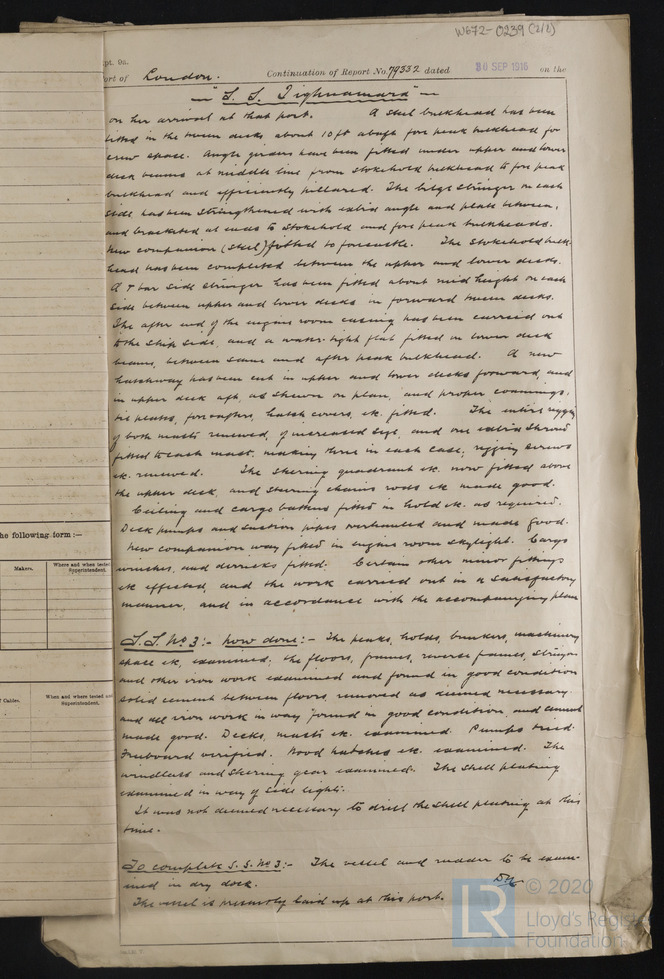 W672-0239 (2/2)
pt. 9a.
ort of London. Continuation of Report No. 79332 dated 30 SEP 1916 on the
"S. S. Tighnamara"
on her arrival at that port. A steel bulkhead has been
fitted in the tween decks about 10 ft abaft fore peak bulkhead for
crew space. Angle girders have been fitted under upper and lower
deck beams at middle line from stokehold bulkhead to fore peak
bulkhead and efficiently pillared. The bilge stringer on each
side has been strengthened with extra angle and plate between,
and bracketed at ends to stokehold and fore peak bulkheads.
New companion (steel) fitted to forecastle. The stokehold bulk-
head has been completed between the upper and lower decks.
A T bar side stringer has been fitted about mid height on each
side between upper and lower decks in forward tween decks.
The after end of the engine room casing has been carried out
to the ship side, and a water tight flat fitted on lower deck
beams, between same and after peak bulkhead. A new
hatchway has been cut in upper and lower decks forward, and
in upper deck aft, as shewn on plan, and proper coamings,
fore and afters, hatch covers, etc. fitted. The entire rigging
of both masts renewed, of increased size, and one extra shroud
fitted to each mast, making three in each case; rigging screws
etc. renewed. The steering quadrant etc. now fitted above
the upper deck, and steering chains rods etc made good.
Ceiling and cargo battens fitted in hold etc. as required.
Deck pumps and suction pipes overhauled and made good.
New companion way fitted in engine room skylight. Cargo
winches, and derricks fitted. Certain other minor fittings
etc effected, and the work carried out in a satisfactory
manner, and in accordance with the accompanying plan
he following form :—
Makers. Where and when tested Superintendent.
S.S. No 3:- now done:- The peaks, holds, bunkers, machinery
space etc, examined; the floors, frames, reverse frames, stringers
and other iron work examined and found in good condition
solid cement between floors, removed as deemed necessary
and all iron work in way found in good condition, and cement
made good. Decks, masts etc. examined. Pumps tried.
Freeboard verified. Wood hatches etc. examined. The
windlass and steering gear examined. The shell plating
examined in way of side lights.
It was not deemed necessary to drill the shell plating at this
time.
f Cables. When and where tested and Superintendent.
To complete S.S. No 3:- The vessel and rudder to be exam-
ined in dry dock.
The vessel is presently laid up at this port.
LR © 2020
Lloyd's Register
Foundation